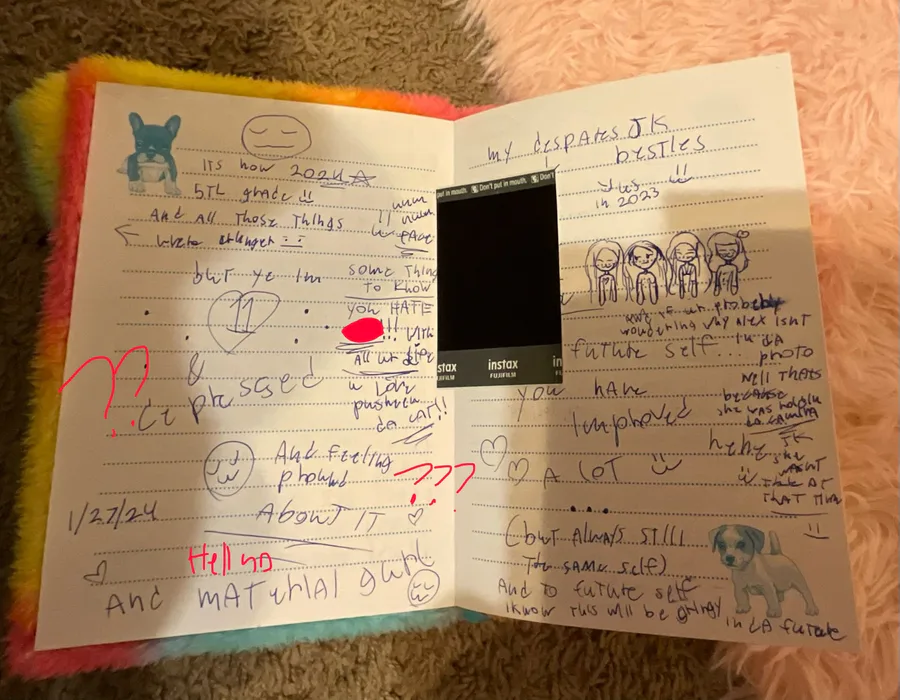 Its now 2024
5th grade
And All Those Things
were
but ye Im
11
&
dephessed
And feeling
ABOUT IT
1/27/24
Hell na
And MATerial gurl
PAGE
some Thing
To know
you HATE
!!!
All
u love
pusheen
da cAT!!
??
???
put in mouth. Don't put in mouth. Don't
instax
instax
FUJIFILM
in
my despares JK
besties
in 2023
future self...
you have
Improved
A LoT
...
(but Always still
The same self)
And To future self
I know This will be gringy
in LA future
probably
wondering why Alex isnt
in dA
photo
well Thats
because
she was holdin
da camera
hehe JK
she
wasnt
There AT
THAT